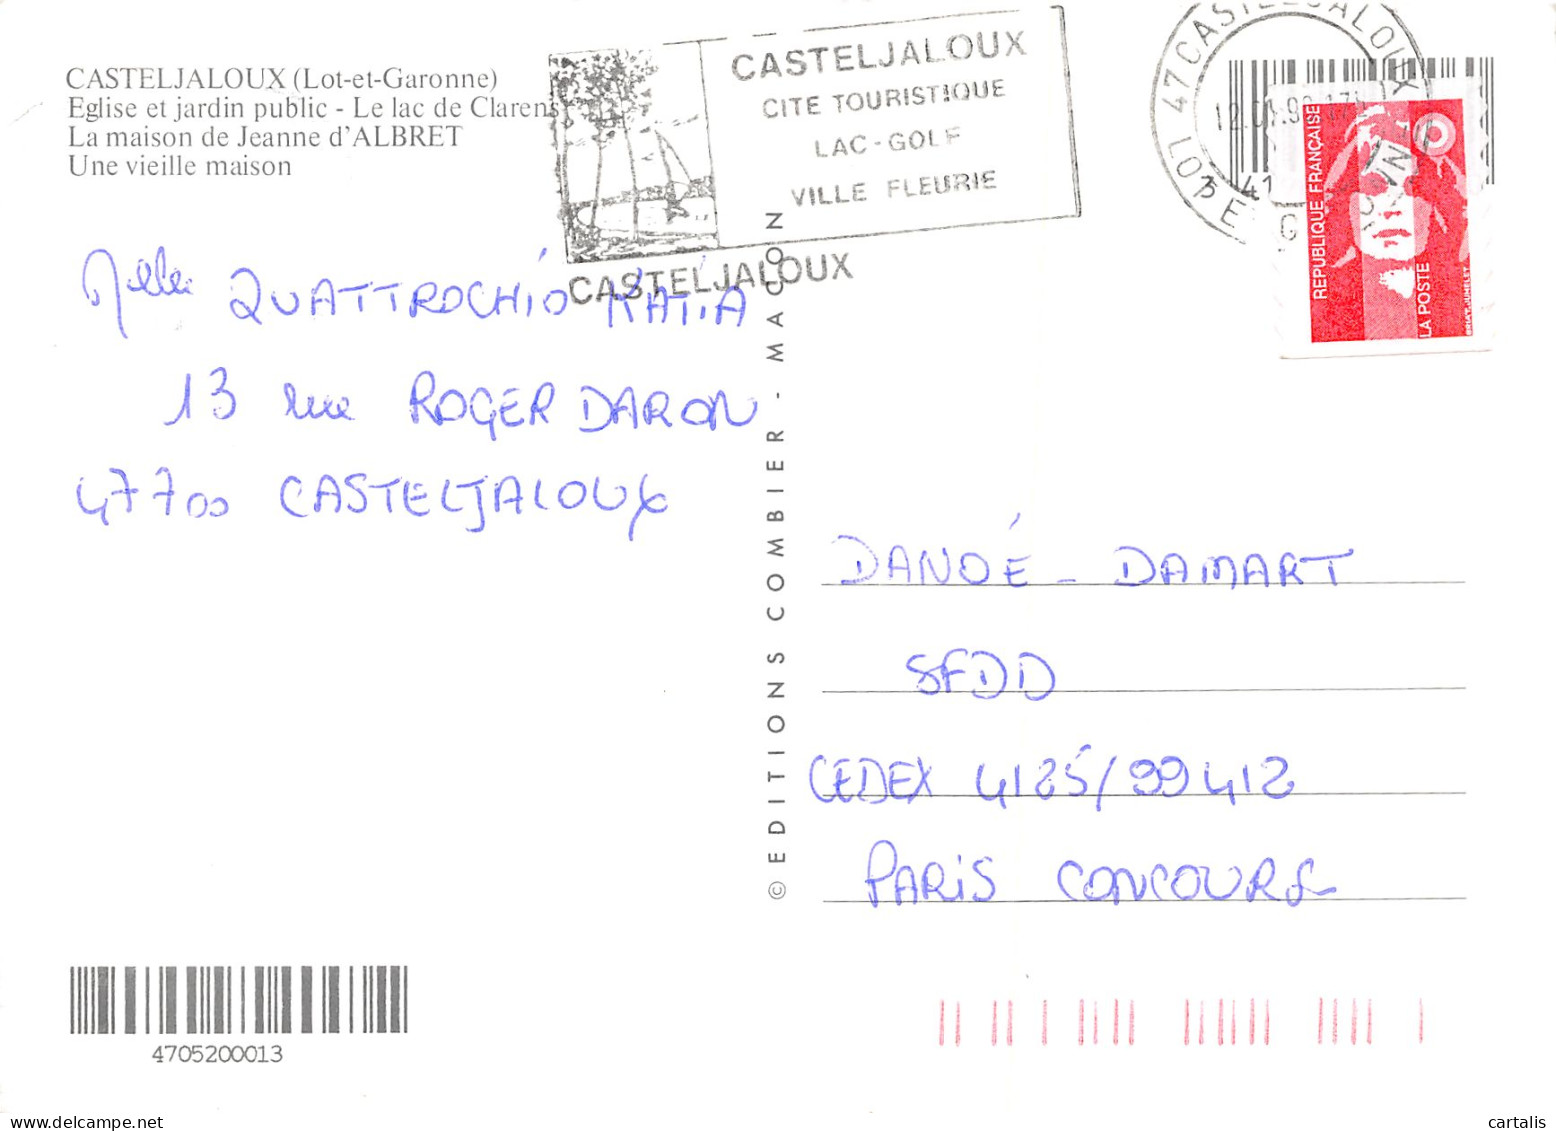 CASTELJALOUX (Lot-et-Garonne)
Eglise et jardin public - Le lac de Clarens
La maison de Jeanne d'ALBRET
Une vieille maison
CASTELJALOUX
CITE TOURISTIQUE
LAC - GOLF
VILLE FLEURIE
CASTELJALOUX
47 CASTELJALOUX
LOT ET GARONNE
REPUBLIQUE FRANÇAISE
LA POSTE
Melle QUATTROCHIO KATIA
13 rue ROGER DARON
47700 CASTELJALOUX
© EDITIONS COMBIER - MACON
DANOÉ - DAMART
SFDD
CEDEX 4125/99412
PARIS CONCOURS
4705200013
cartalis